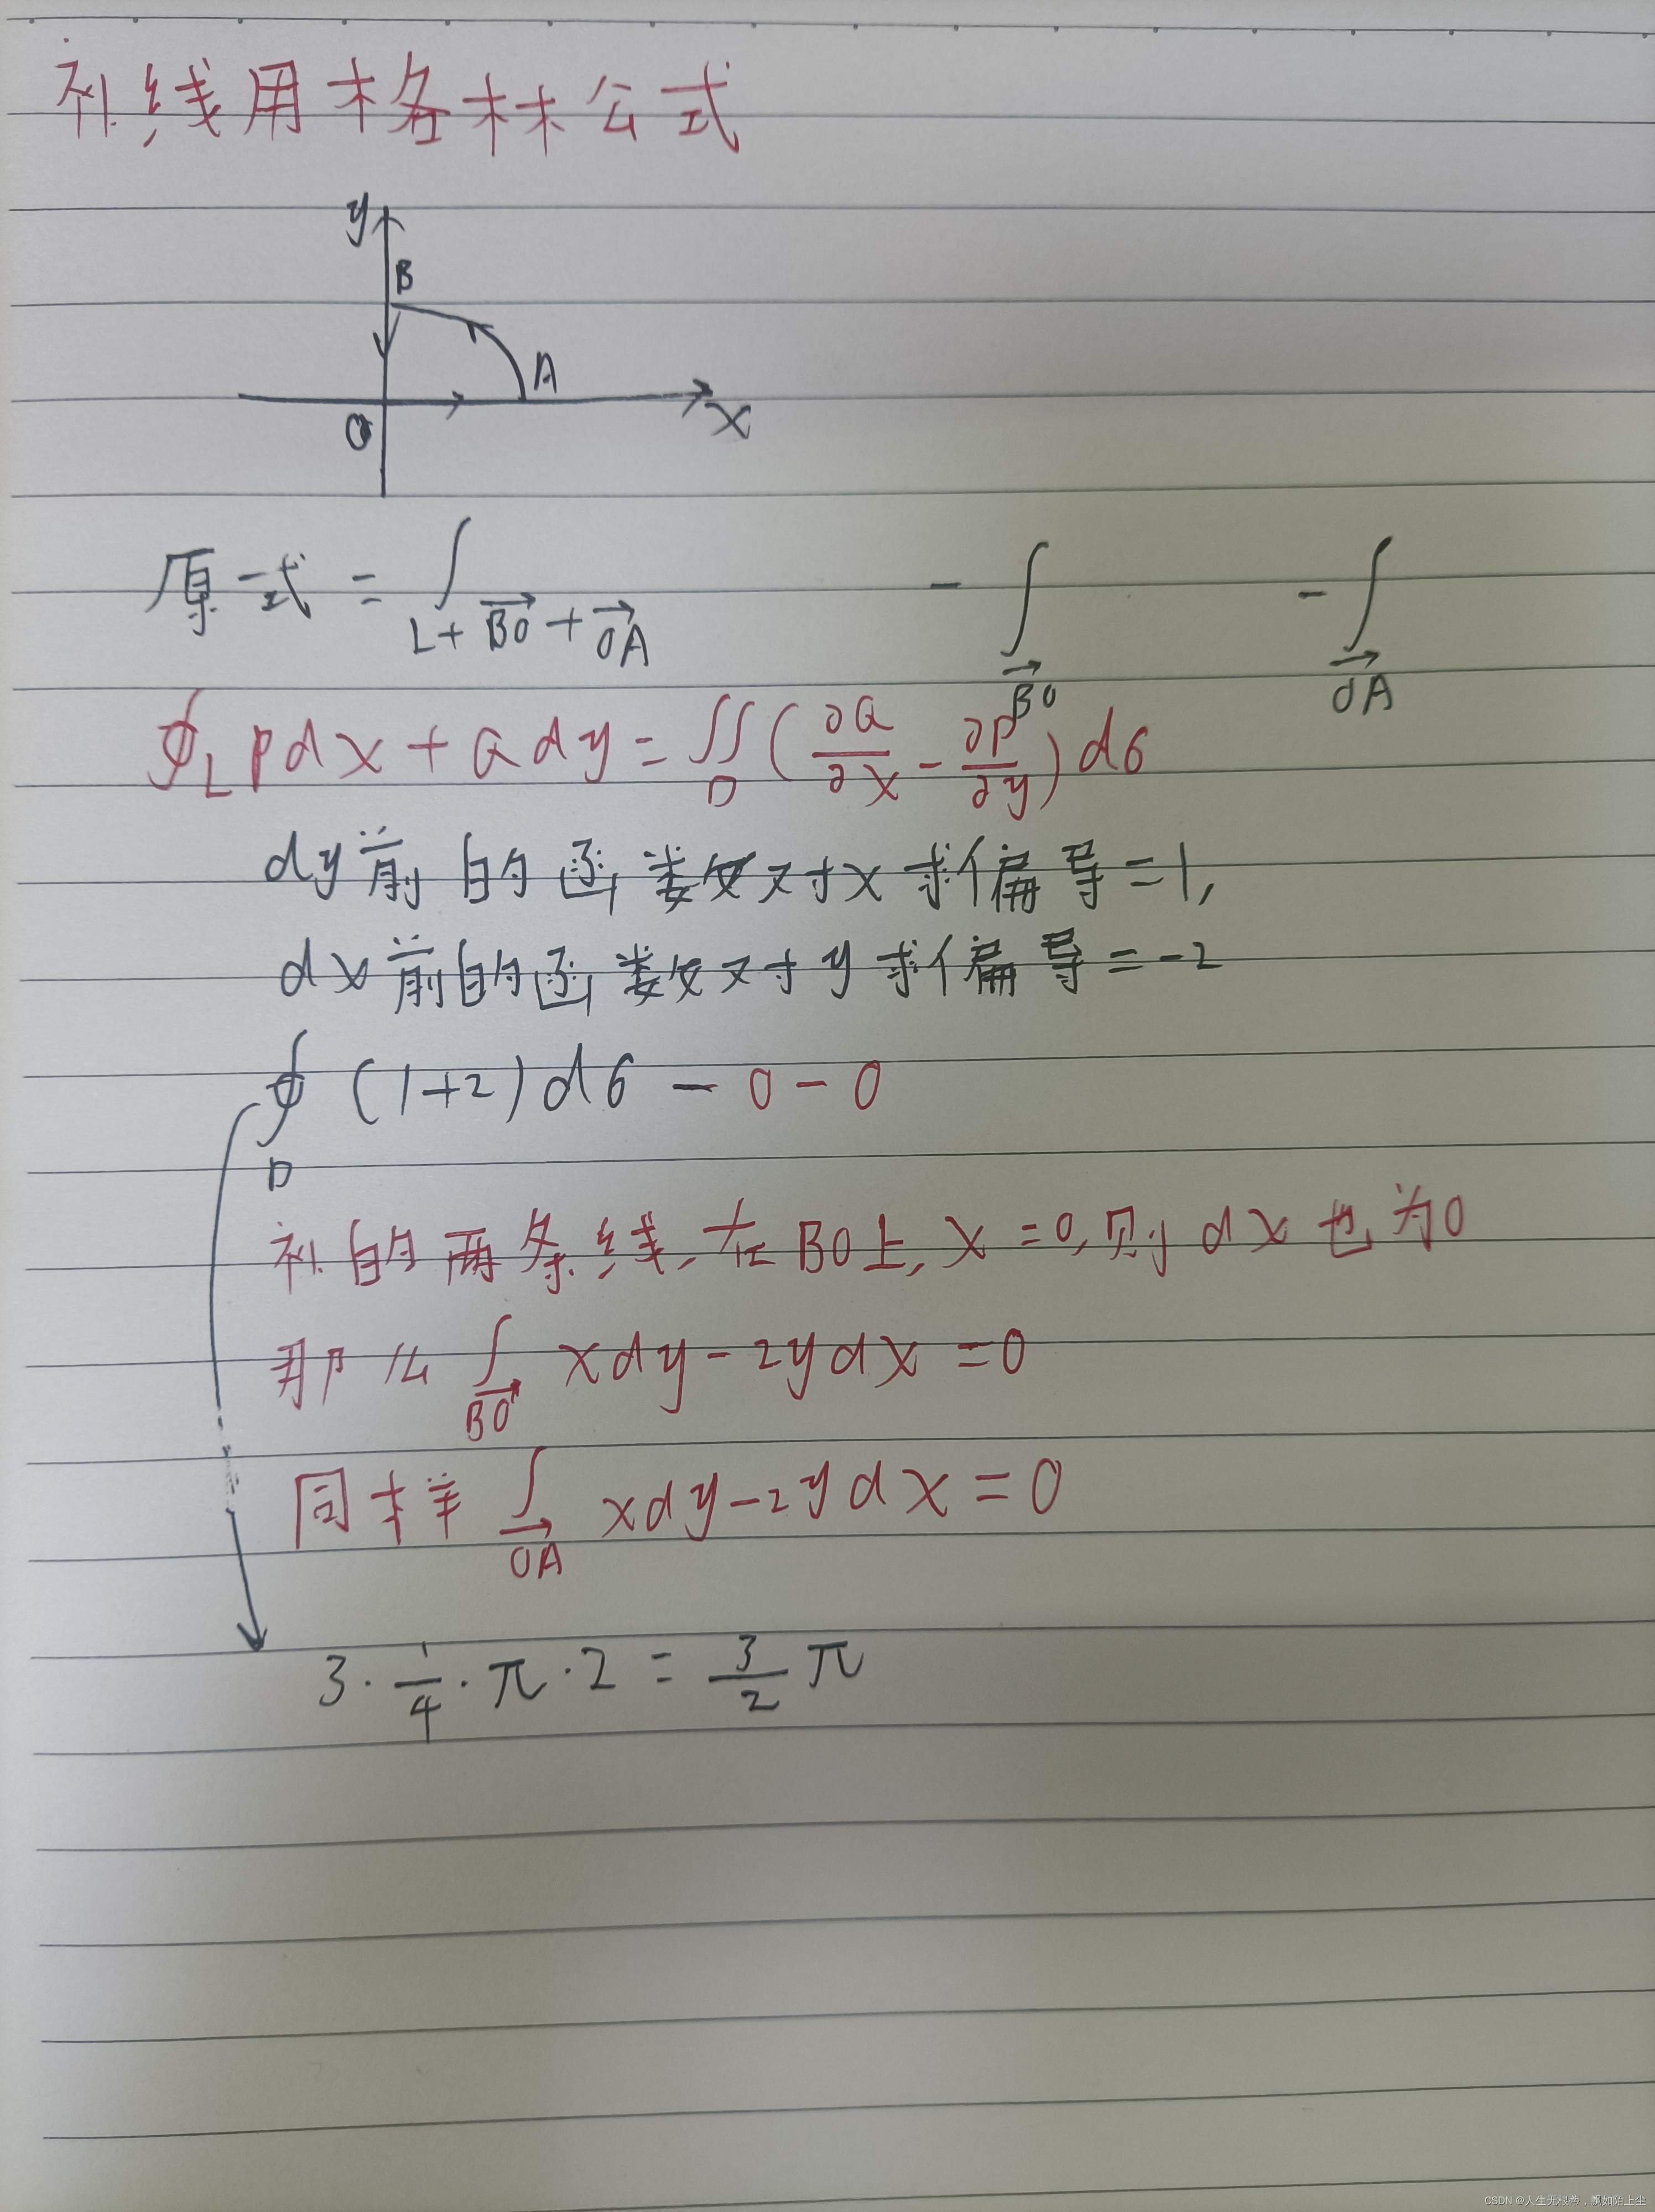 补线用格林公式
y
B
A
O
x
原式 = ∫_{L+\overrightarrow{BO}+\overrightarrow{OA}} - ∫_{\overrightarrow{BO}} - ∫_{\overrightarrow{OA}}
∮_L Pdx + Qdy = ∬_D (∂Q/∂x - ∂P/∂y) dσ
dy前的函数对x求偏导=1,
dx前的函数对y求偏导=-2
∮_D (1+2)dσ - 0 - 0
补的两条线,在BO上,x=0,则dx也为0
那么 ∫_{\overrightarrow{BO}} xdy-2ydx=0
同样 ∫_{\overrightarrow{OA}} xdy-2ydx=0
3·1/4·π·2=3/2 π
CSDN @人生无根蒂，飘如陌上尘